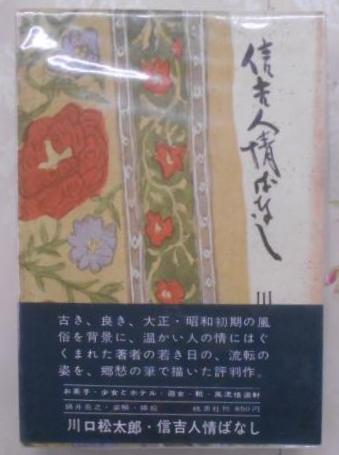 信吉人情ばなし
川
古き、良き、大正・昭和初期の風
俗を背景に、温かい人の情にはぐ
くまれた著者の若き日の、流転の
姿を、郷愁の筆で描いた評判作。
お美子・少女とホテル・遊女・鞄・風流悟道軒
桃源社刊 850円
川口松太郎・信吉人情ばなし